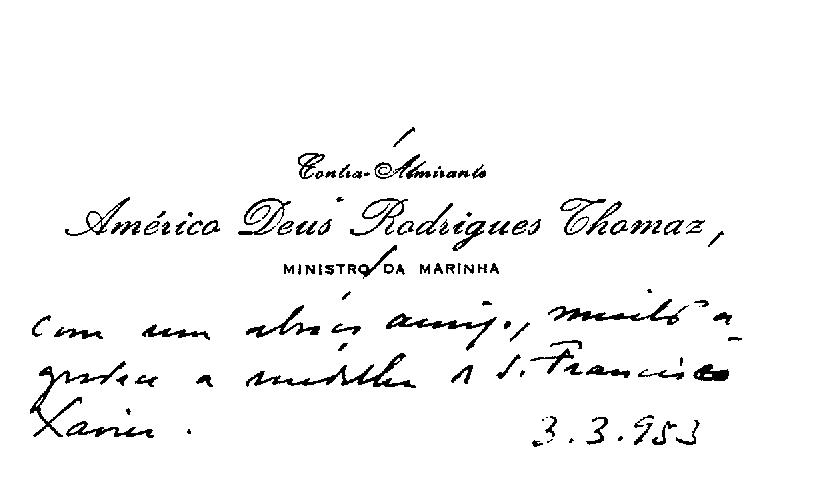 Contra-Almirante
Américo Deus Rodrigues Thomaz,
MINISTRO DA MARINHA
com um abraço amigo, muito a
gradece a medalha de S. Francisco
Xavier.
3.3.953